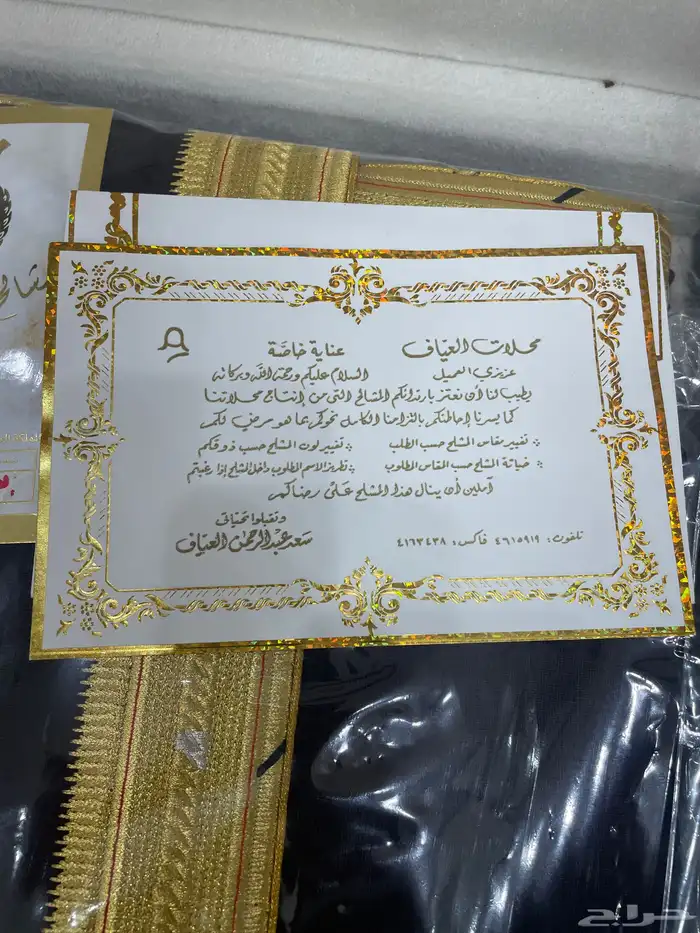 محلات العيّاف
عناية خاصّة
عزيزي العميل
السلام عليكم ورحمة الله وبركاته
يطيب لنا أن نعتز بارتدائكم المشالح التي من إنتاج محلاتنا
كما يسرنا إحاطتكم بالتزامنا الكامل نحوكم بما هو مرضي لكم
تغيير مقاس المشلح حسب الطلب
تغيير لون المشلح حسب ذوقكم
خياطة المشلح حسب المقاس المطلوب
تطريز الاسم المطلوب داخل المشلح إذا رغبتم
آملين أن ينال هذا المشلح على رضاكم
وتقبلوا تحياتي
سعد عبدالرحمن العيّاف
تلفون: ٤٦١٥٩١٩ فاكس: ٤١٦٣٤٣٨
حراج